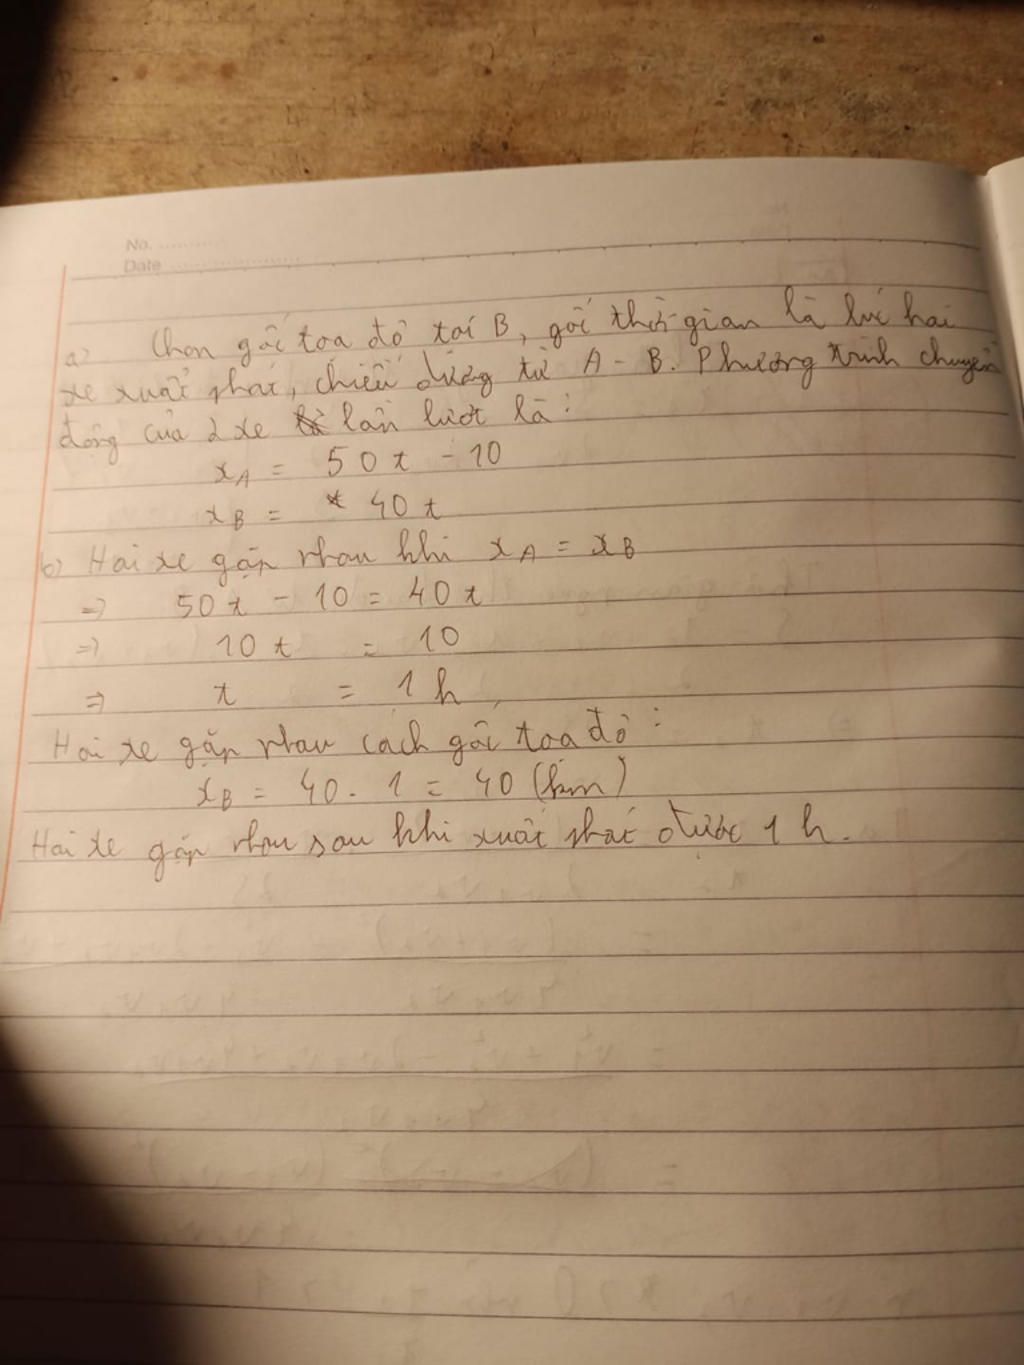 No. ..........
Date ....................
a) Chọn gốc toạ độ tại B, gốc thời gian là lúc hai
xe xuất phát, chiều dương từ A - B. Phương trình chuyển
động của 2 xe lần lượt là:
x_A = 50t - 10
x_B = 40t
b) Hai xe gặp nhau khi x_A = x_B
=> 50t - 10 = 40t
=> 10t = 10
=> t = 1h
Hai xe gặp nhau cách gốc toạ độ:
x_B = 40 . 1 = 40 (km)
Hai xe gặp nhau sau khi xuất phát được 1 h.